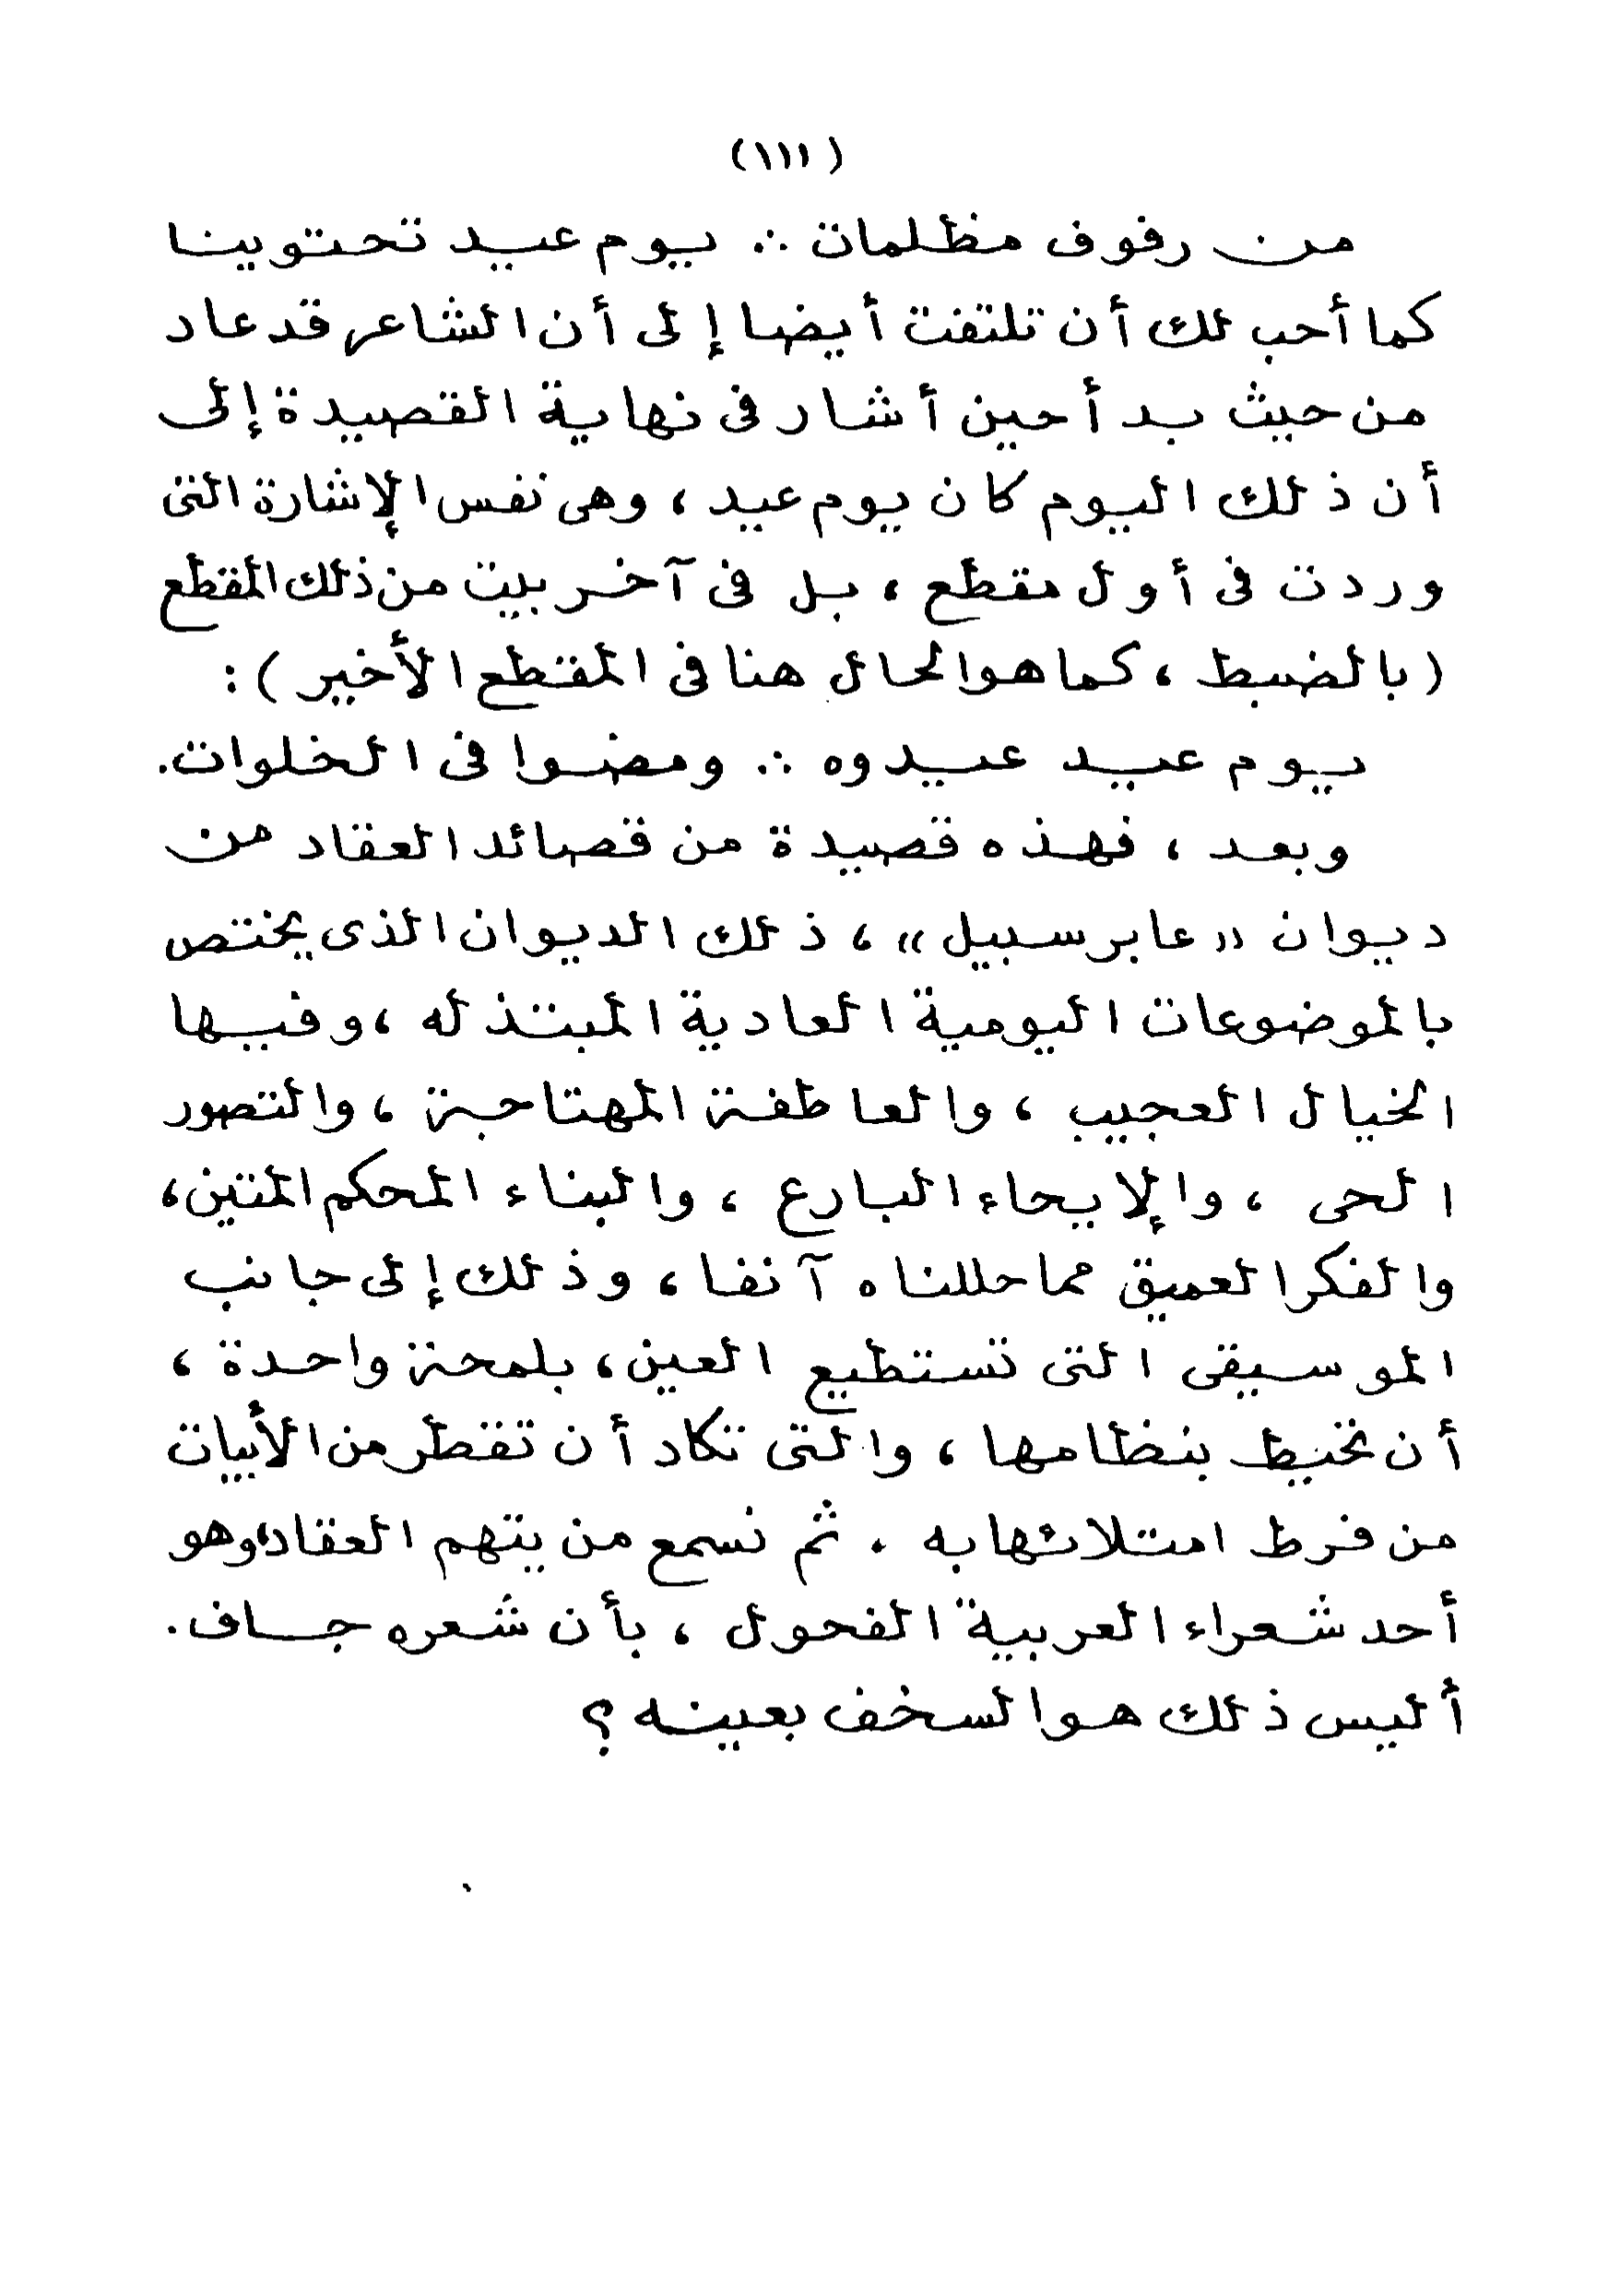 (١١١)
من رفوف مظلمات ∴ يوم عيد تحتوينا
كما أحب لك أن تلتفت أيضا إلى أن الشاعر قد عاد
من حيث بدأ حين أشار فى نهاية القصيدة إلى
أن ذلك اليوم كان يوم عيد ، وهى نفس الإشارة التى
وردت فى أول مقطع ، بل فى آخر بيت من ذلك المقطع
( بالضبط ، كما هو الحال هنا فى المقطع الأخير ) :
يوم عيد عيدوه ∴ ومضوا فى الخلوات.
وبعد ، فهذه قصيدة من قصائد العقاد من
ديوان « عابر سبيل » ، ذلك الديوان الذى يختص
بالموضوعات اليومية العادية المبتذله ، وفيها
الخيال العجيب ، والعاطفة المهتاجة ، والتصور
الحى ، والإيحاء البارع ، والبناء المحكم المتين ،
والفكر العميق مما حللناه آنفا ، وذلك إلى جانب
الموسيقى التى تستطيع العين ، بلمحة واحدة ،
أن تخيط بنظامها ، والتى تكاد أن تقطر من الأبيات
من فرط امتلائها به . ثم نسمع من يتهم العقاد ، وهو
أحد شعراء العربية الفحول ، بأن شعره جاف.
أليس ذلك هو السخف بعينه ؟